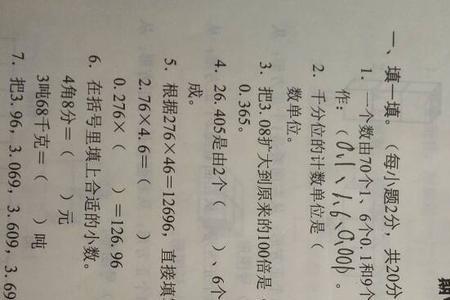 期
一、填一填。(每小题2分,共20分
1. 一个数由70个1、6个0.1和9个
作:( 。
2. 千分位的计数单位是(
数单位。
3. 把3.08扩大到原来的100倍是
0.365。
4. 26.405是由2个( )、6个
成。
5. 根据276×46=12696,直接填
2.76×4.6=( )
0.276×( )=126.96
6. 在括号里填上合适的小数。
4角8分=( )元
3吨68千克=( )吨
7. 把3.96,3.069,3.609,3.69